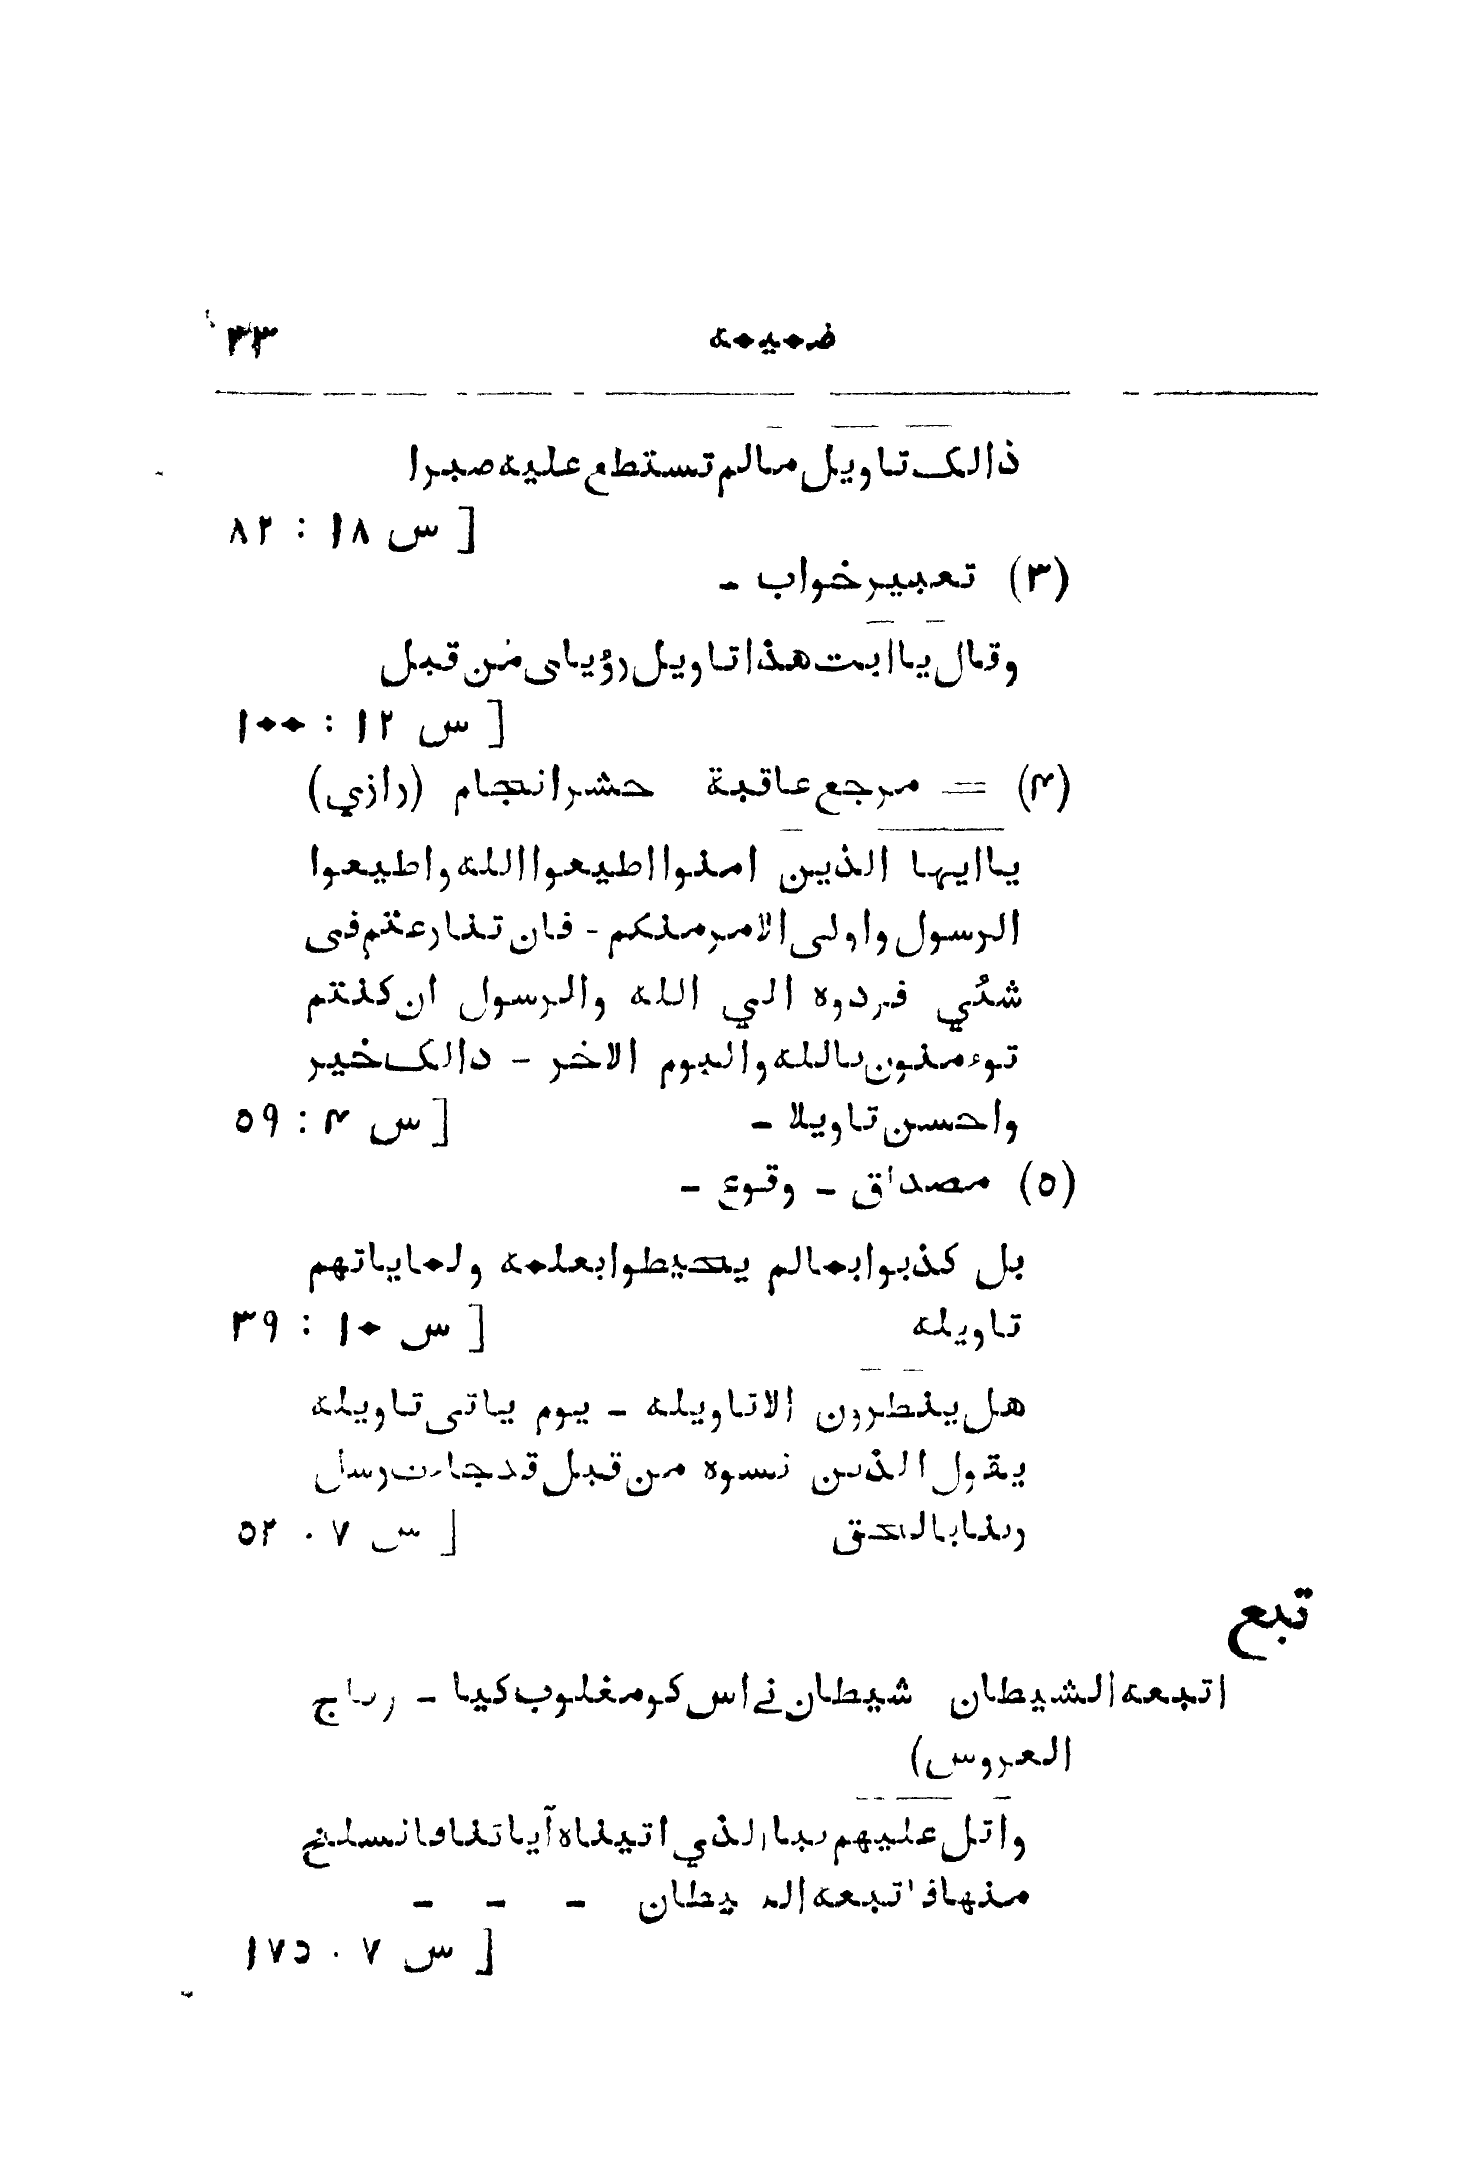 ضمیمہ ۳۳
ذالک تاویل مالم تستطع علیہ صبرا
[ س ۱۸ : ۸۲
(۳) تعبیر خواب -
وقال یا ابت ھذا تاویل رؤیای من قبل
[ س ۱۲ : ۱۰۰
(۴) = مرجع عاقبة حشر انجام (رازي)
یا ایہا الذین امنوا اطیعوا اللہ و اطیعوا
الرسول و اولی الامر منکم - فان تنازعتم فی
شئي فردوہ الي اللہ والرسول ان کنتم
توءمنون باللہ والیوم الاخر - ذالک خیر
واحسن تاویلا - [ س ۴ : ۵۹
(۵) مصداق - وقوع -
بل کذبوا بمالم یحیطوا بعلمہ ولما یاتھم
تاویلہ [ س ۱۰ : ۳۹
ھل ینظرون الا تاویلہ - یوم یاتی تاویلہ
یقول الذین نسوہ من قبل قد جاءت رسل
ربنا بالحق [ س ۷ . ۵۲
تبع
اتبعہ الشیطان شیطان نے اس کو مغلوب کیا - (تاج
العروس)
واتل علیھم نبا الذي اتیناہ آیاتنا فانسلخ
منہا فاتبعہ الشیطان - - -
[ س ۷ . ۱۷۵